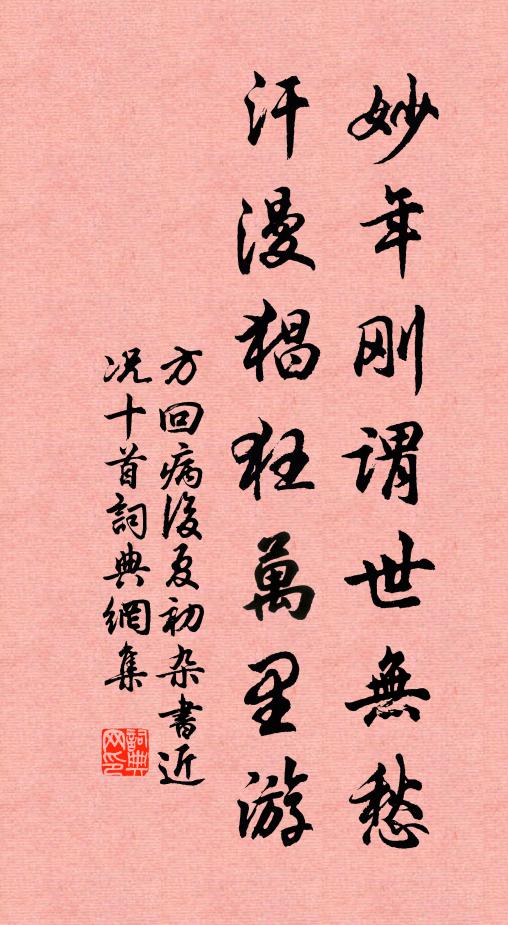 妙年刚谓世無愁
汗漫猖狂萬里游
方回病後夏初杂書近
况十首詞典網集
詞典网印